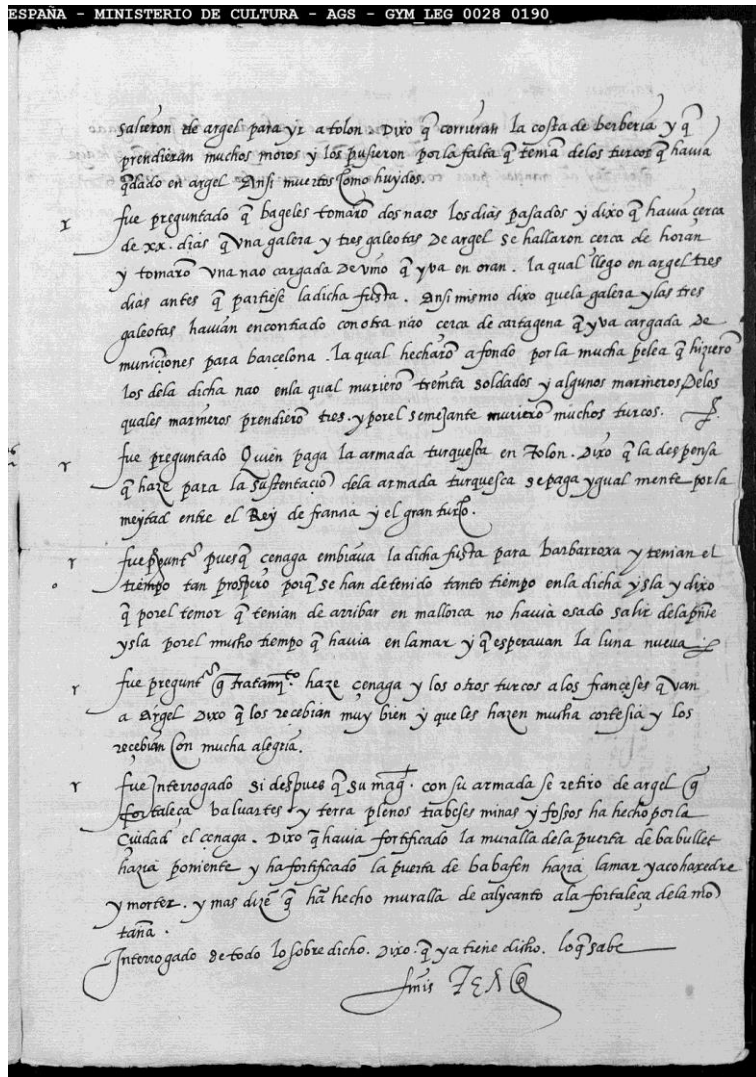 ESPAÑA - MINISTERIO DE CULTURA - AGS - GYM_LEG_0028_0190
salieron de argel para yr a tolon. Dixo q̃ corrieran la costa de berberia y q̃
prendieran muchos moros y los pusieron por la falta q̃ tenia delos turcos q̃ havia
q̃dado en argel Ansi muertos como huydos.
r fue preguntado q̃ bageles tomarõ dos naos los dias pasados y dixo q̃ havia çerca
de xx. dias q̃ vna galera y tres galeotas De argel se hallaron cerca de horan
y tomarõ vna nao cargada De vino q̃ yva en oran. la qual llego en argel tres
dias antes q̃ partiese la dicha fusta. Ansi mismo dixo quela galera y las tres
galeotas havian encontrado con otra nao cerca de cartagena q̃ yva cargada De
muniçiones para barçelona. la qual hecharõ a fondo por la mucha pelea q̃ hizierõ
los dela dicha nao enla qual murierõ treinta soldados y algunos marineros Delos
quales marineros prendierõ tres. y porel semejante murierõ muchos turcos.
r fue preguntado Quien paga la armada turquesca en Tolon. Dixo q̃ la despensa
q̃ haze para la sustentaciõ dela armada turquesca se paga ygual mente por la
meytad entre el Rey de françia y el gran turco.
r fue pregunt° pues q̃ cenaga embiava la dicha fusta para barbarroxa y tenian el
tiempo tan prospero porq̃ se han detenido tanto tiempo enla dicha ysla y dixo
q̃ porel temor q̃ tenian de arribar en mallorca no havia osado salir dela pñte
ysla porel mucho tiempo q̃ havia en lamar y q̃ esperavan la luna nueva
r fue pregunt° q̃ tratami̊° haze çenaga y los otros turcos alos françeses q̃ van
a Argel Dixo q̃ los recebian muy bien y que les hazen mucha cortesia y los
recebian con mucha alegria.
r fue Interrogado si despues q̃ su mag.t con su armada se retiro de argel q̃
fortaleça valuartes y terra plenos trabeses minas y fossos ha hecho por la
Ciudad el çenaga. Dixo q̃ havia fortificado la muralla dela puerta de babullet
hazia poniente y ha fortificado la puerta de babafen hazia lamar
y morter. y mas dizẽ q̃ hã hecho muralla de calycanto ala fortaleça dela mõ
taña.
Interrogado de todo lo sobre dicho. Dixo. q̃ ya tiene dicho. lo q̃ sabe
finis